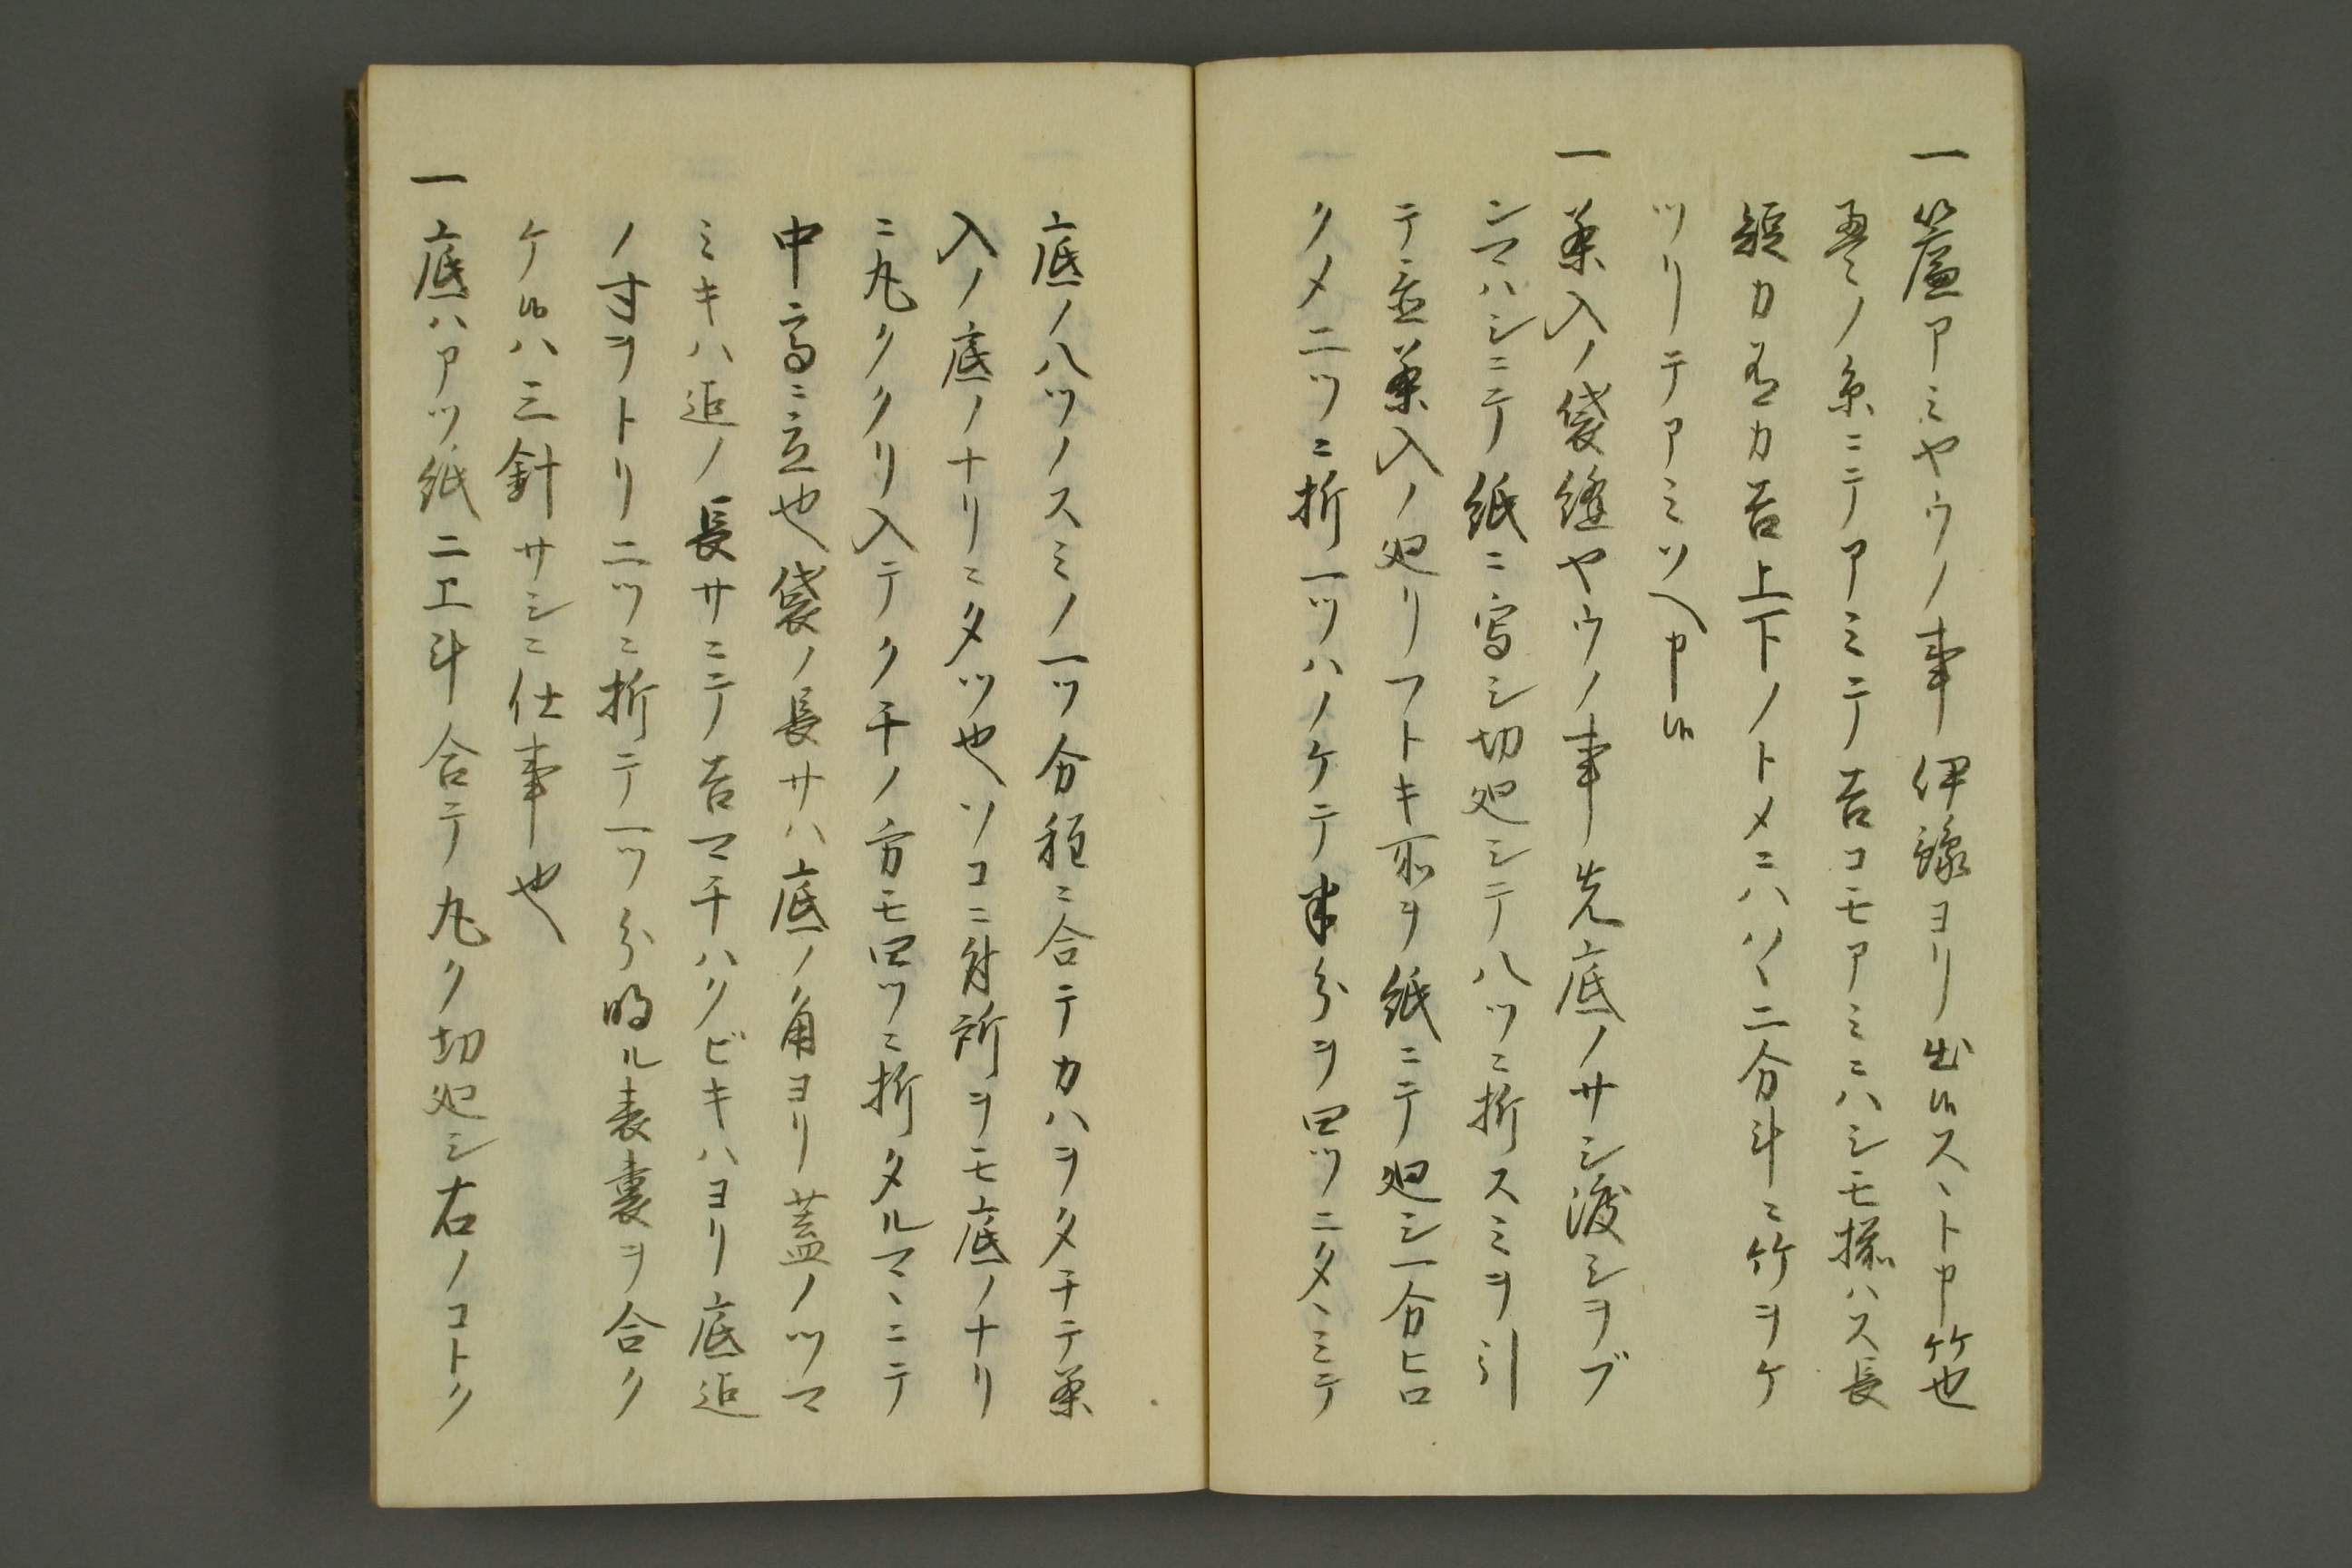 一簾アミヤウノ事 伊豫ヨリ出候スヽト申竹也
ノ糸ニテアミテ吉コモアミニハシモ揉ハス長
短カ有カ吉上下ノトメニハソヽ二分斗ニ竹ヲケ
ツリテアミソヘ申候
一茶入ノ袋縫ヤウノ事先底ノサシ渡シヲブ
ンマハシニテ紙ニ寫シ切廻シテ八ツニ折スミヲ引
テ置茶入ノ廻リフトキ所ヲ紙ニテ廻シ一分ヒロ
クメ二ツニ折一ツハノケテ半分ヲ四ツニタヽミテ
底ノ八ツノスミノ一ツ分程ニ合テカハヲタチテ茶
入ノ底ノナリニタツ也ソコニ付所ヲモ底ノナリ
ニ丸クククリ入テクチノ方モ四ツニ折タルマヽニテ
中高ニ立也袋ノ長サハ底ノ角ヨリ蓋ノツマ
ミキハ迄ノ長サニテ吉マチハクビキハヨリ底迄
ノ寸ヲトリ二ツニ折テ一ツ分明ル表裏ヲ合ク
ケ候ハ三針サシニ仕事也
一底ハアツ紙ニ工斗合テ丸ク切廻シ右ノコトク